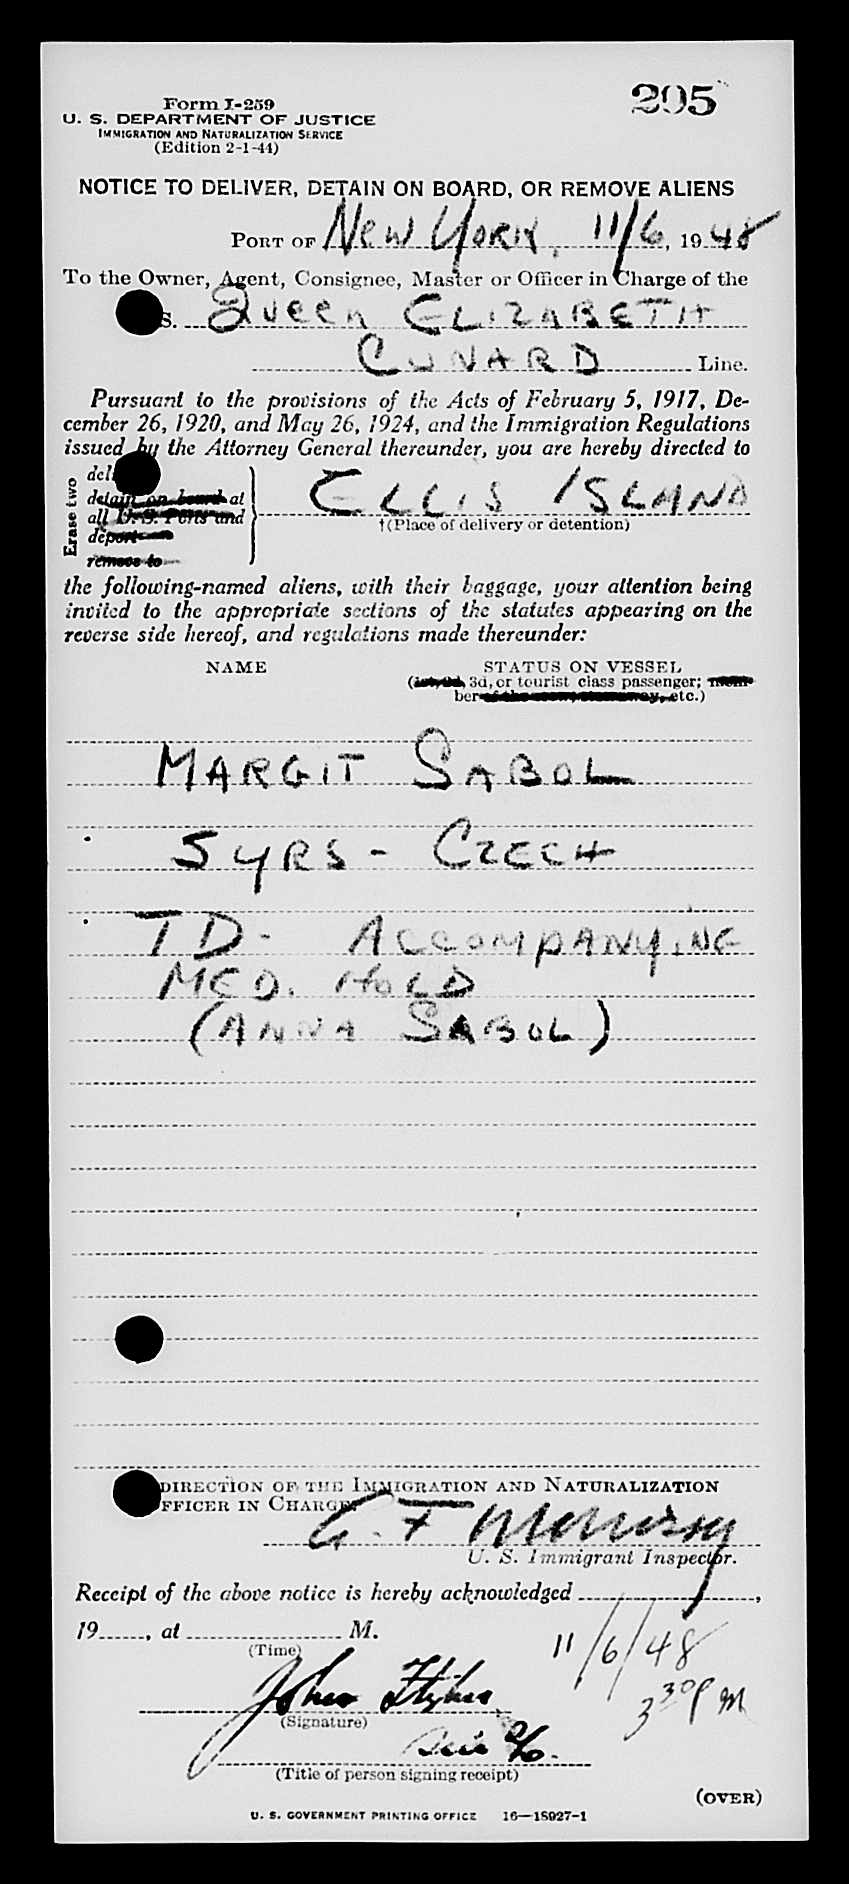 Form I-259
U. S. DEPARTMENT OF JUSTICE
IMMIGRATION AND NATURALIZATION SERVICE
(Edition 2-1-44)
295
NOTICE TO DELIVER, DETAIN ON BOARD, OR REMOVE ALIENS
PORT OF New York, 11/6, 1948
To the Owner, Agent, Consignee, Master or Officer in Charge of the
S. Queen ELIZABETH
CUNARD Line.
Pursuant to the provisions of the Acts of February 5, 1917, De-
cember 26, 1920, and May 26, 1924, and the Immigration Regulations
issued by the Attorney General thereunder, you are hereby directed to
Erase two
deli
detain on board at
all U.S. Ports and
deport
remove to
ELLIS ISLAND
†(Place of delivery or detention)
the following-named aliens, with their baggage, your attention being
invited to the appropriate sections of the statutes appearing on the
reverse side hereof, and regulations made thereunder:
NAME
STATUS ON VESSEL
(1st, 2d, 3d, or tourist class passenger; mem-
ber of the crew, stowaway, etc.)
MARGIT SABOL
5 yRS - CZECH
TD - ACCOMPANyING
MED. HOLD
(ANNA SABOL)
DIRECTION OF THE IMMIGRATION AND NATURALIZATION
FFICER IN CHARGE:
U. S. Immigrant Inspector.
Receipt of the above notice is hereby acknowledged ,
19 , at M.
(Time)
11/6/48
3 30 PM
John
(Signature)
(Title of person signing receipt)
(OVER)
U. S. GOVERNMENT PRINTING OFFICE 16—18927-1